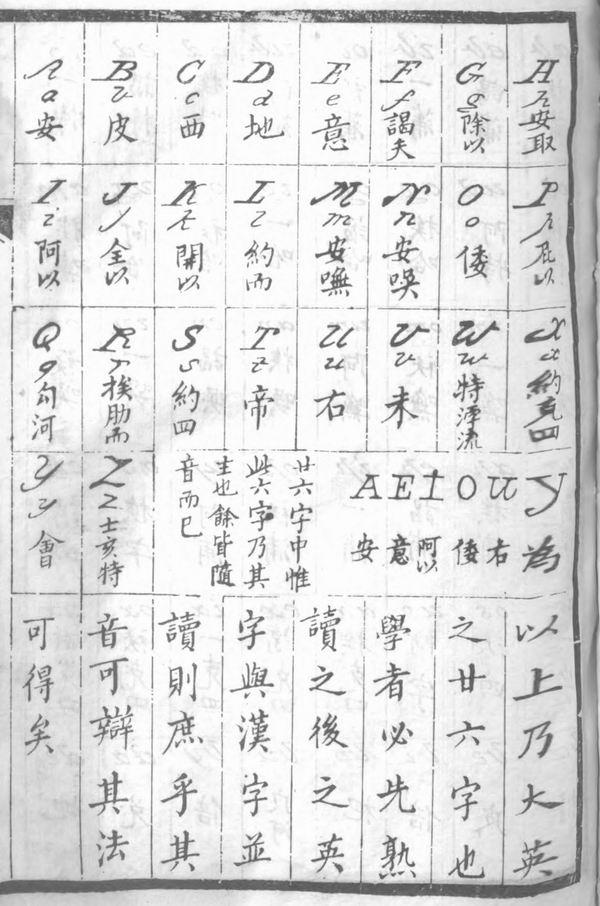 A a 安
B b 皮
C c 西
D d 地
E e 意
F f 謁夫
G g 除以
H h 安取
I i 阿以
J j 全以
K k 開以
L l 約而
M m 安嘸
N n 安唤
O o 倭
P p 屁以
Q q 勾河
R r 挨肋而
S s 約四
T t 帝
U u 右
V v 未
W w 特潭流
X x 約克四
Y y 會
Z z 士亥特
A E I O U Y 為
安 意 阿以 倭 右
廿六字中惟
此六字乃其
生也餘皆隨
音而已
以上乃大英
之廿六字也
學者必先熟
讀之後之英
字與漢字並
讀則庶乎其
音可辯其法
可得矣